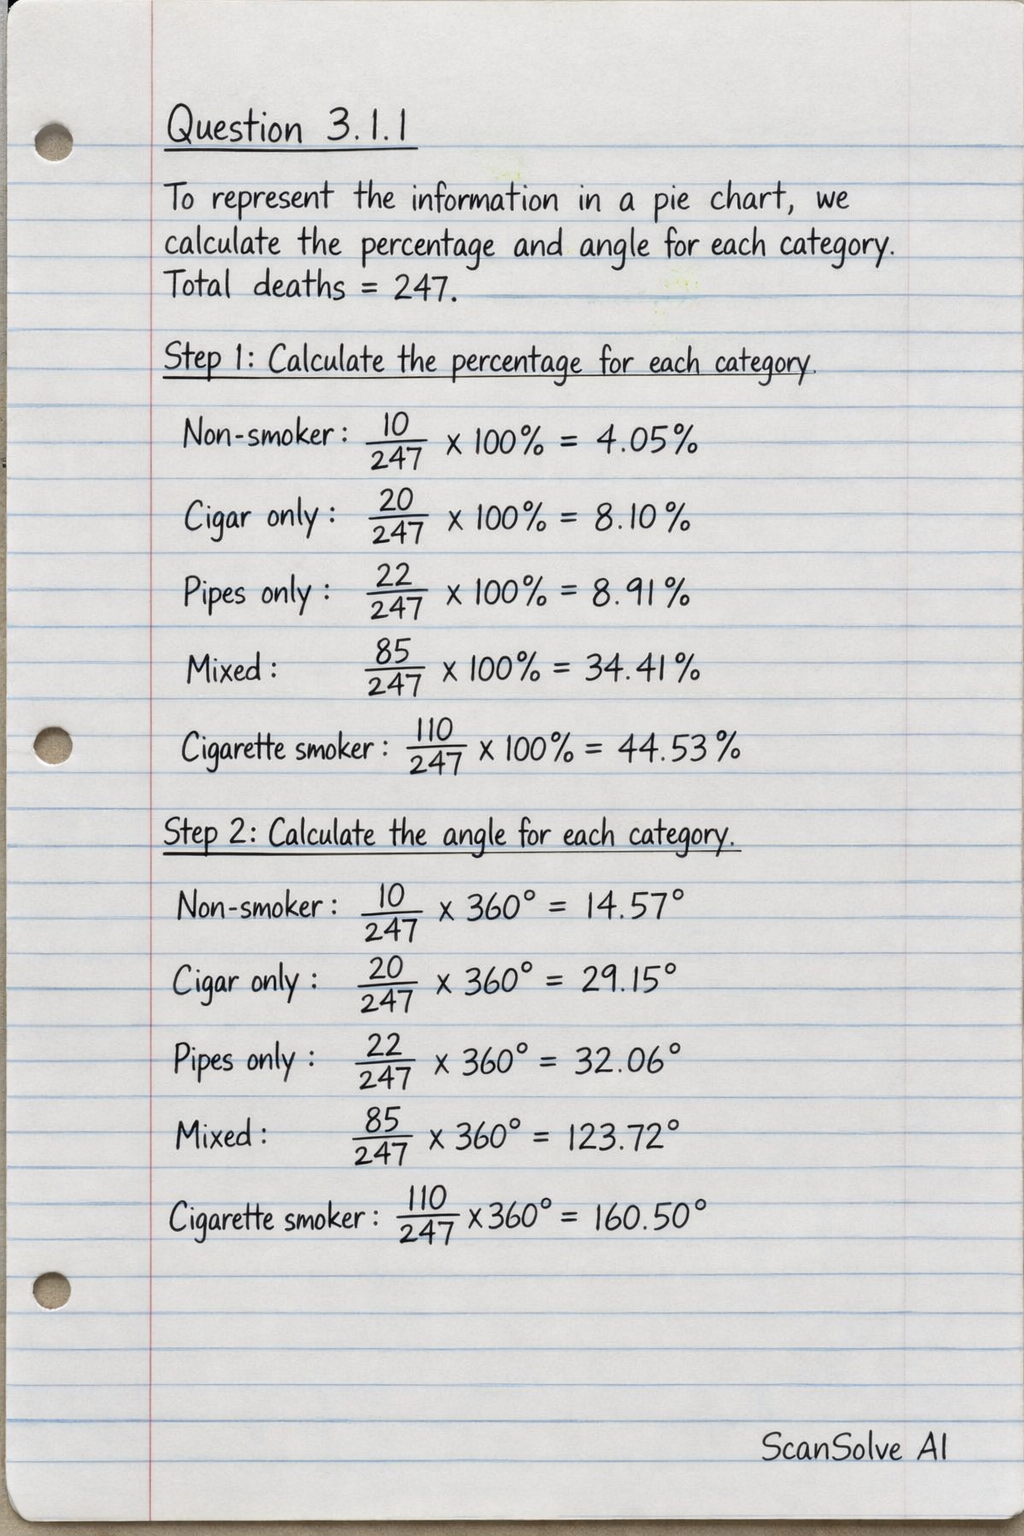 Question 3.1.1
To represent the information in a pie chart, we
calculate the percentage and angle for each category.
Total deaths = 247.
Step 1: Calculate the percentage for each category.
Non-smoker: 10/247 x 100% = 4.05%
Cigar only: 20/247 x 100% = 8.10%
Pipes only: 22/247 x 100% = 8.91%
Mixed: 85/247 x 100% = 34.41%
Cigarette smoker: 110/247 x 100% = 44.53%
Step 2: Calculate the angle for each category.
Non-smoker: 10/247 x 360° = 14.57°
Cigar only: 20/247 x 360° = 29.15°
Pipes only: 22/247 x 360° = 32.06°
Mixed: 85/247 x 360° = 123.72°
Cigarette smoker: 110/247 x 360° = 160.50°
ScanSolve AI